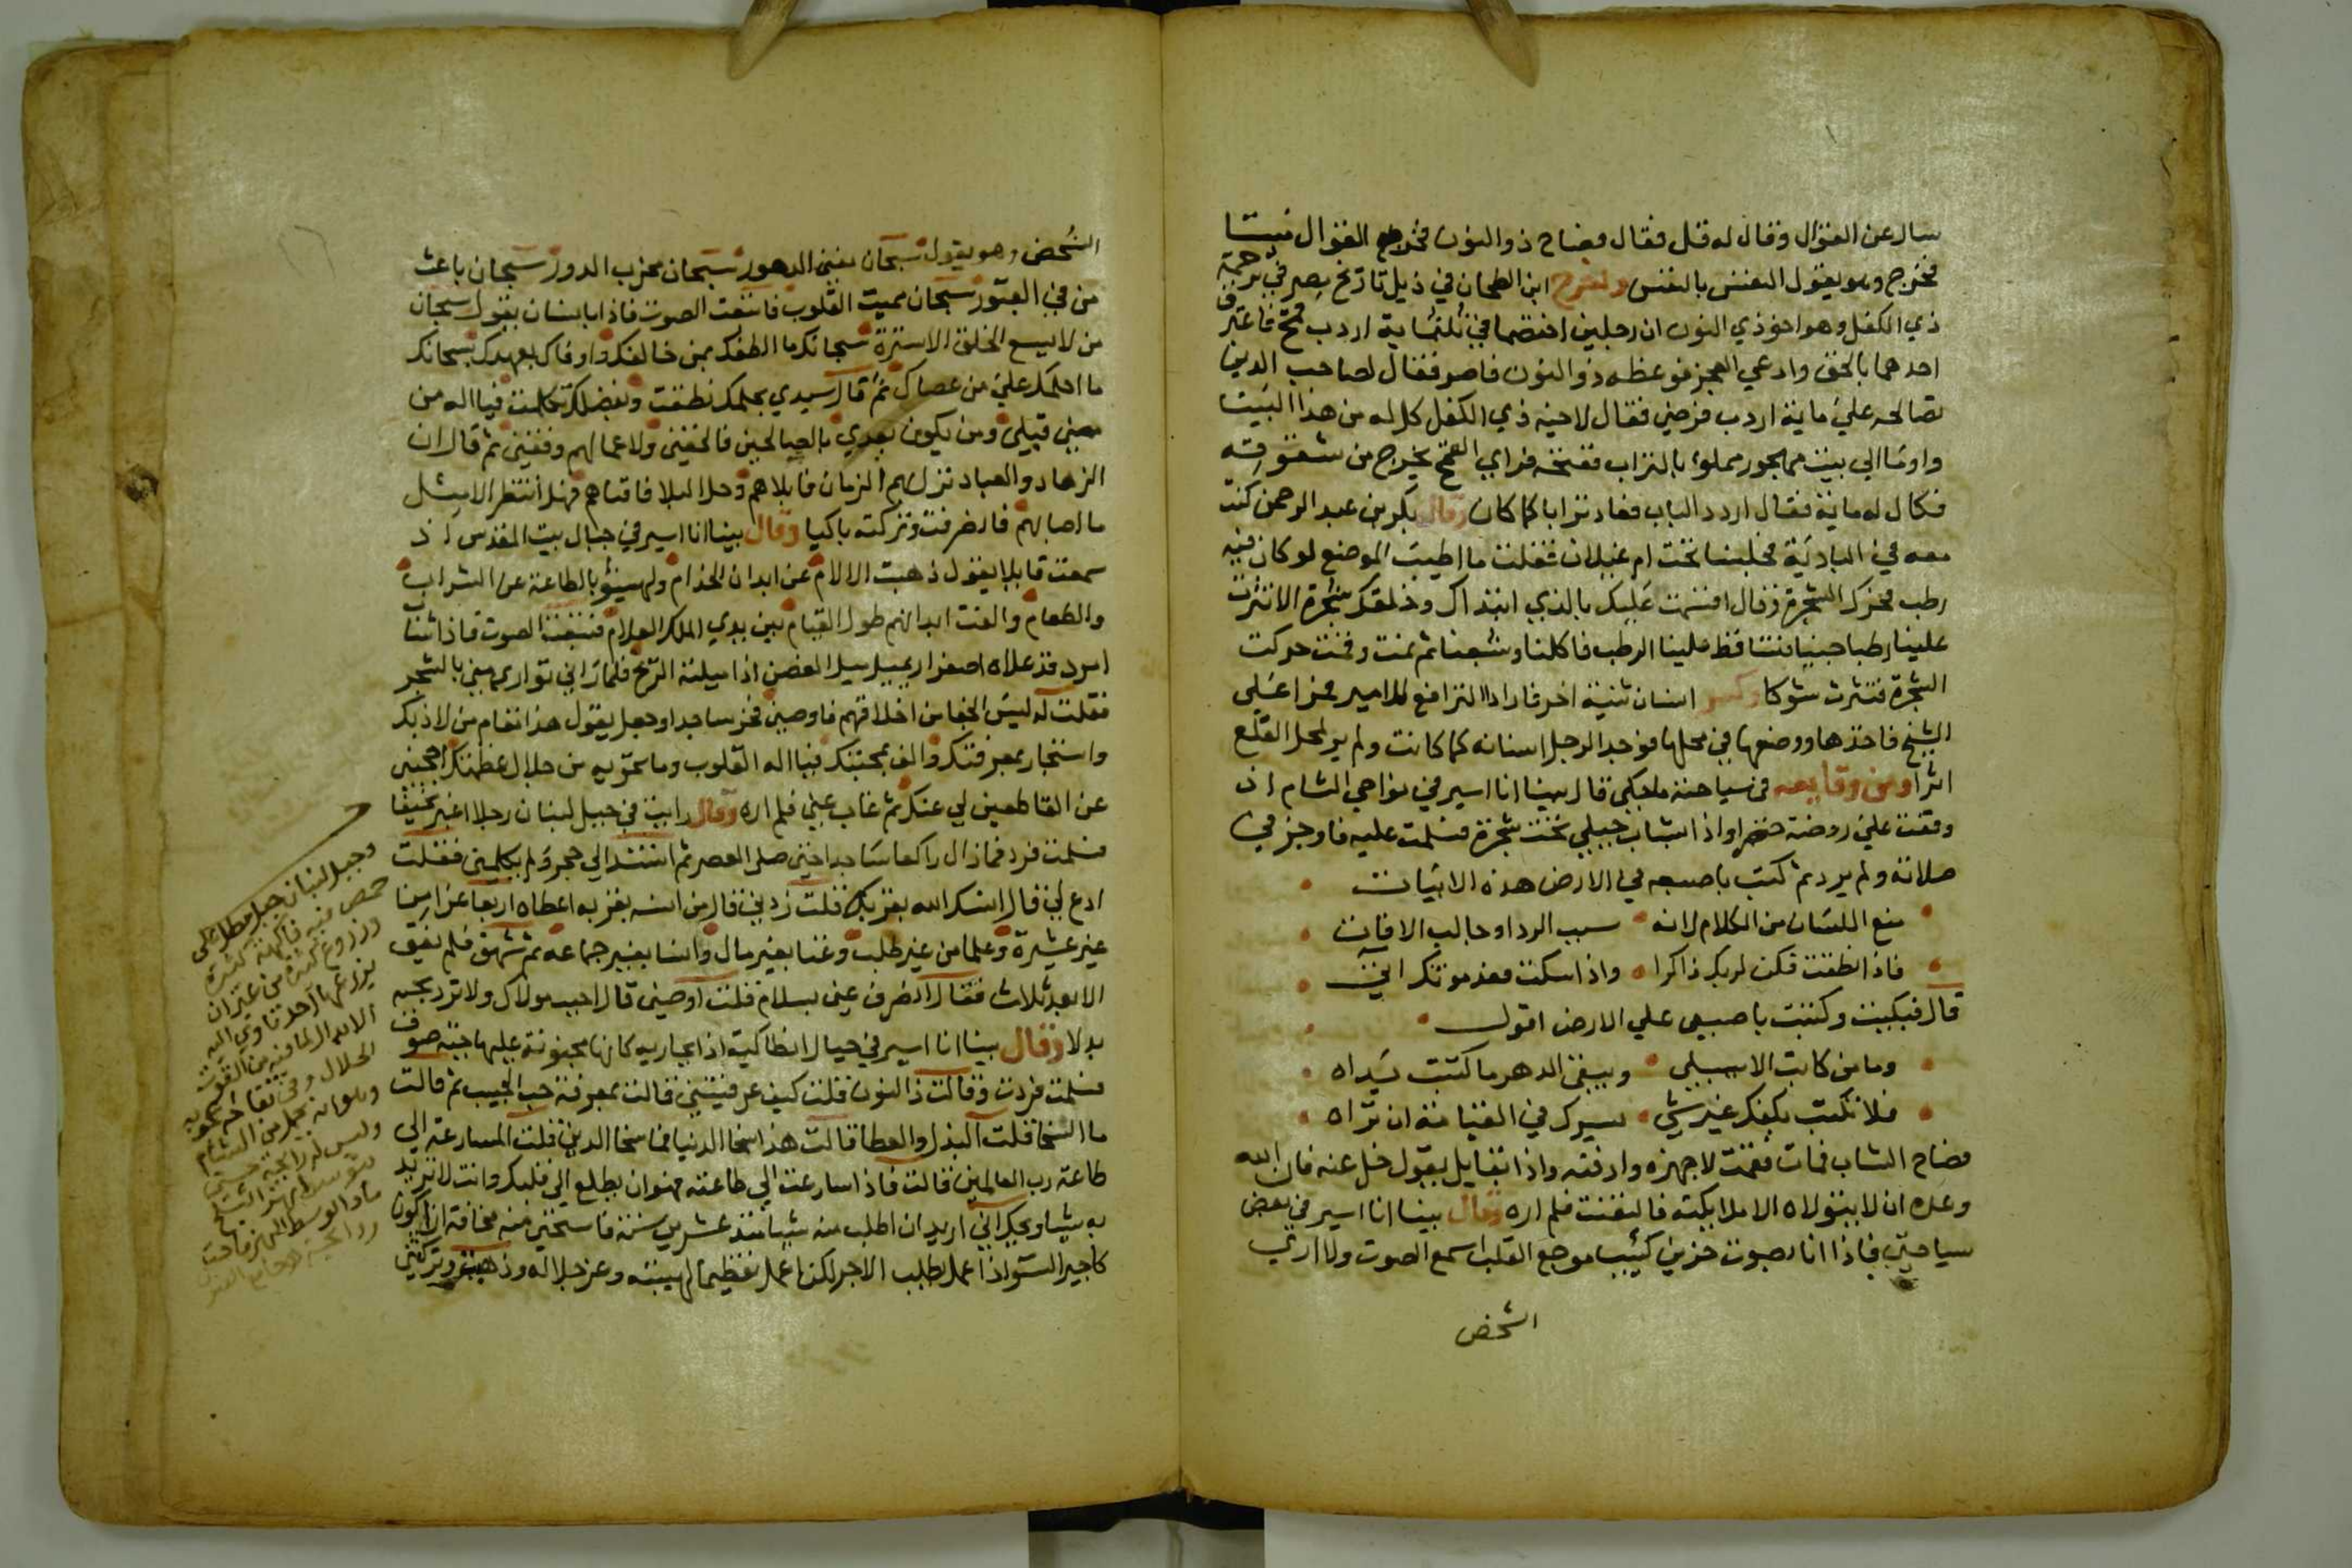 سال عن القوال وقال له قل فقال فصاح ذو النون فخرج القوال ميتا
فخرج وهو يقول النفس بالنفس واخرج ابن الطحان في ذيل تاريخ مصر في ترجمة
ذي الكفل وهو اخو ذي النون ان رجلين اختصما في ثلثماية اردب قمح فاعترف
احدهما بالحق وادعي العجز فوعظه ذو النون فاصر فقال لصاحب الدين
تصالحه علي ماية اردب فرضي فقال لاخيه ذي الكفل كل له من هذا البيت
واوما الي بيت مهجور مملوء بالتراب ففتحه فراي القمح يخرج من شقوقه
فكال له ماية فقال اردد الباب فعاد ترابا كما كان وقال بكر بن عبد الرحمن كنت
معه في البادية فجلسنا تحت ام غيلان فقلت ما اطيب الموضع لو كان فيه
رطب فحرك الشجرة وقال اقسمت عليك بالذي ابتداك وخلقك شجرة الا نثرت
علينا رطبا جنيا فتساقط علينا الرطب فاكلنا وشبعنا ثم نمت وقمت حركت
الشجرة فنثرت شوكا وكسر انسان ثنية اخر فارادا الترافع للامير فمرا علي
الشيخ فاخذها ووضعها في محلها فوجد الرجل اسنانه كما كانت ولم ير لمحل القلع
اثرا ومن وقايعه في سياحته ما حكي قال بينا انا اسير في نواحي الشام اذ
وقفت علي روضة خضرا واذا شاب جميل تحت شجرة فسلمت عليه فاوجز في
صلاته ولم يرد ثم كتب باصبعه في الارض هذه الابيات
منع اللسان من الكلام لانه سبب الردا وجالب الافات
فاذا نطقت فكن لربك ذاكرا واذا سكت فعد موتك اتي
قال فبكيت وكتبت باصبعي علي الارض اقول
وما من كاتب الا سيبلي ويبقي الدهر ما كتبت يداه
فلا تكتب بكفك غير شي يسرك في القيامة ان تراه
فصاح الشاب فمات فقمت لاجهزه وادفنه واذا بقايل يقول خل عنه فان الله
وعده ان لا يتولاه الا ملايكته فالتفت فلم اره وقال بينا انا اسير في بعض
سياحتي فاذا انا بصوت حزين كئيب موجع القلب اسمع الصوت ولا اري
الشخص
الشخص وهو يقول سبحان مفني الدهور سبحان مخرب الدور سبحان باعث
من في القبور سبحان مميت القلوب فاتبعت الصوت فاذا بانسان يقول سبحان
من لا يسع الخلق الا ستره سبحانك ما الطفك بمن خالفك واوفاك بعهدك سبحانك
ما احلمك علي من عصاك ثم قال سيدي بحلمك نطقت وبفضلك تكلمت فيا اله من
مضي قبلي ومن يكون بعدي بالصالحين فالحقني ولاعمالهم وفقني ثم قال اين
الزهاد والعباد نزل بهم الزمان فابلاهم وحل البلا فافناهم فهل انتظر الا مثل
ما اصابهم فانصرفت وتركته باكيا وقال بينا انا اسير في جبال بيت المقدس اذ
سمعت قايلا يقول ذهبت الالام عن ابدان الخدام ولهيو بالطاعة عن الشراب
والطعام والفت ابدانهم طول القيام بين يدي الملك العلام فتتبعت الصوت فاذا شاب
امرد قد علاه اصفرار يميل ميل الغصن اذا ميلته الريح فلما راني تواري مني بالشجر
فقلت له ليس الجفا من اخلاقهم فاوصني فخر ساجدا وجعل يقول هذا مقام من لاذ بك
واستجار بمعرفتك والف محبتك فيا اله القلوب وما تحويه من جلال عظمتك احجبني
عن القاطعين لي عنك ثم غاب عني فلم اره وقال رايت في جبل لبنان رجلا اغبر نحيفا
فسلمت فرد فما زال راكعا ساجدا حتي صلي العصر ثم استند الي حجر ولم يكلمني فقلت
ادع لي فقال انسك الله بقربك قلت زدني قال من انسه بقربه اعطاه اربعا عزا من
غير عشيرة وعلما من غير طلب وغنا بغير مال وانسا بغير جماعه ثم شهق فلم يفق
الا بعد ثلاث فقال انصرف عني بسلام قلت اوصني قال احبب مولاك ولا ترد بحبه
بدلا وقال بينا انا اسير في جبال انطاكية اذا بجارية كانها مجنونة عليها جبة صوف
فسلمت فردت وقالت ذا النون قلت كيف عرفتيني قالت بمعرفة حب الحبيب ثم قالت
ما السخا قلت البذل والعطا قالت هذا سخا الدنيا فما سخا الدين قلت المسارعة الي
طاعة رب العالمين قالت فاذا سارعت الي طاعته فهو ان يطلع الي قلبك وانت لا تريد
به شيا ويحك اني اريد ان اطلب منه شيا منذ عشرين سنة فاستحيي منه مخافة ان اكون
كاجير السو اذا عمل طلب الاجر لكن اعمل تعظيما لهيبته وعز جلاله وذهبت وتركتني
وجبل لبنان جبل مطل علي
حمص فيه فاكهة كثيرة
وزروع كثيرة من غير ان
يزرعها احد تاوي اليه